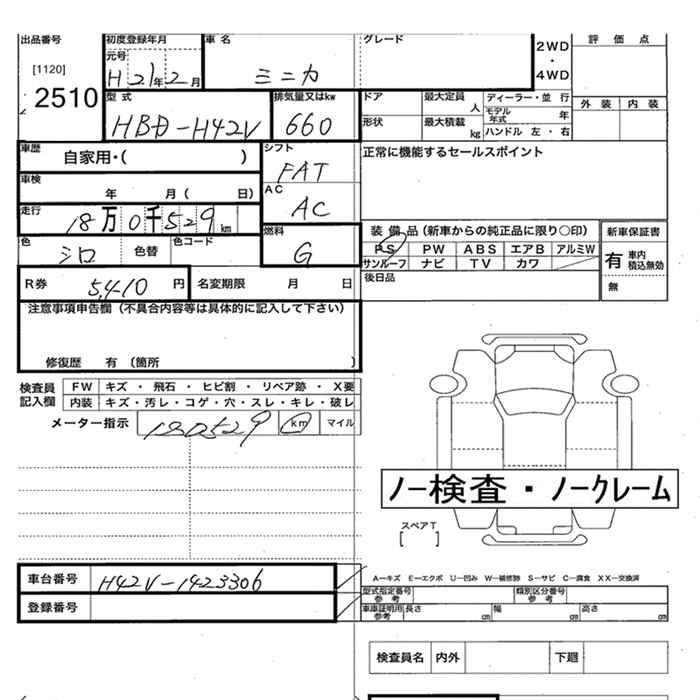 出品番号 初度登録年月 車名 グレード 2WD・4WD 評価点
[1120] 元号 H21年2月 ミニカ
2510 型式 排気量又はkw ドア 最大定員 人 ディーラー・並行 外装 内装
HBD-H42V 660 形状 最大積載 kg モデル年式 年 ハンドル 左・右
車歴 自家用・( ) シフト FAT 正常に機能するセールスポイント
車検 年 月 ( 日) AC AC
走行 18万0千529km 燃料 G 装備品 (新車からの純正品に限り○印) 新車保証書
色 シロ 色替 色コード PS PW ABS エアB アルミW 有 車内積込無効
サンルーフ ナビ TV カワ 無
R券 5,410円 名変期限 月 日 後日品
注意事項申告欄 (不具合内容等は具体的に記入して下さい)
修復歴 有 (箇所 )
検査員記入欄 FW キズ・飛石・ヒビ割・リペア跡・X要
内装 キズ・汚レ・コゲ・穴・スレ・キレ・破レ
メーター指示 180529 km マイル
ノー検査・ノークレーム
スペアT
[ ]
車台番号 H42V-1423306 A-キズ E-エクボ U-凹み W-補修跡 S-サビ C-腐食 XX-交換済
登録番号 型式指定番号 参考 類別区分番号 参考
車庫証明用参考 長さ cm 幅 cm 高さ cm
検査員名 内外 下廻